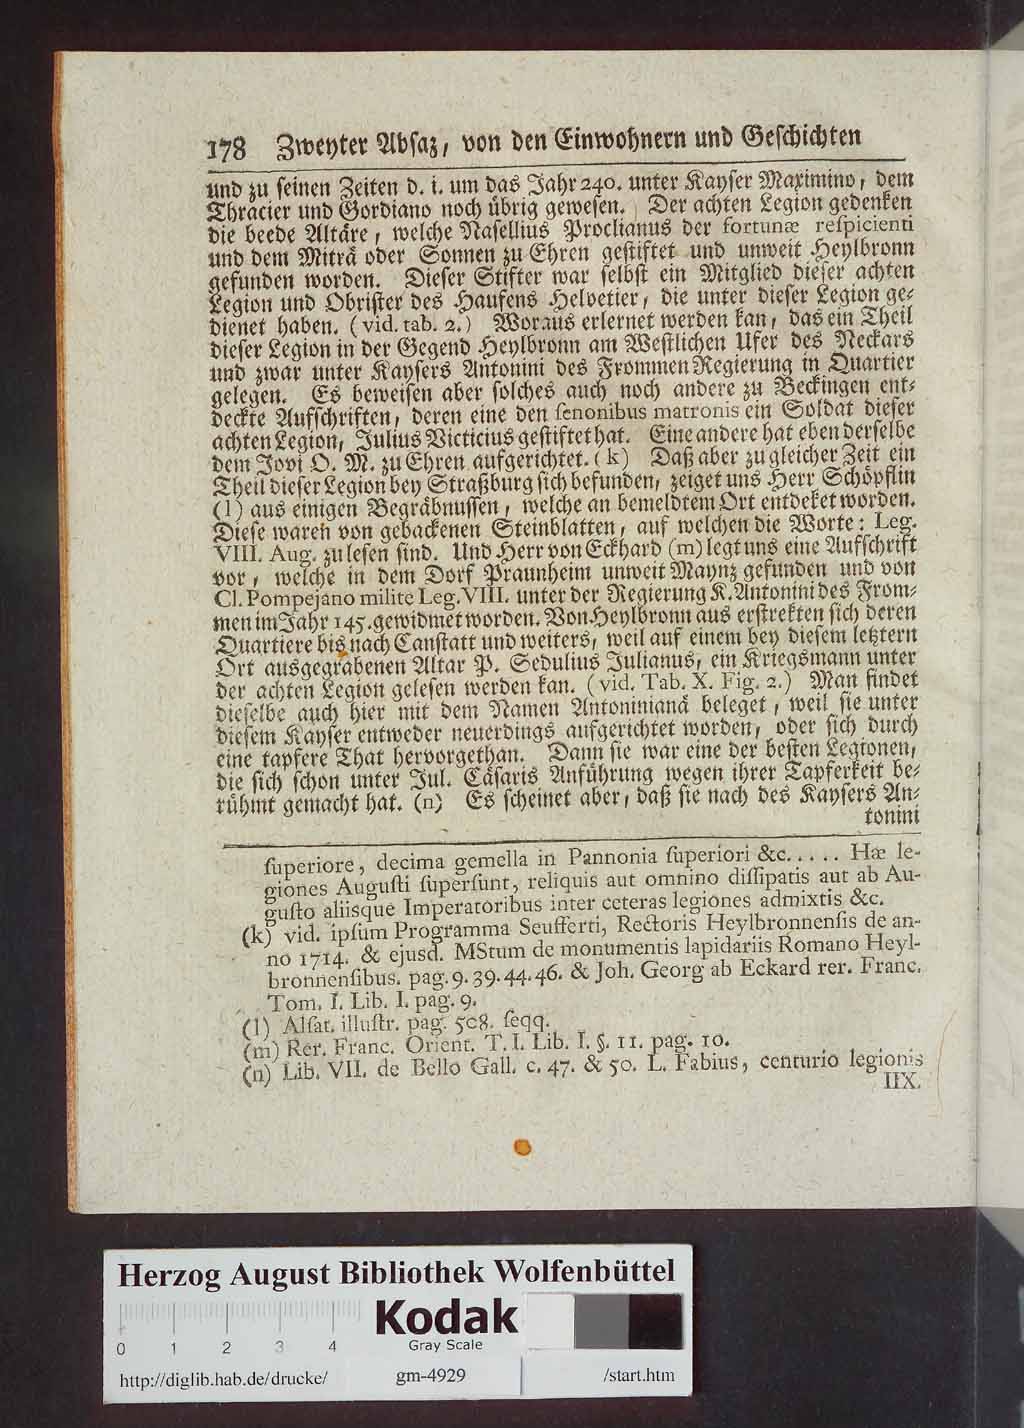 178 Zweyter Absaz, von den Einwohnern und Geschichten
und zu seinen Zeiten d. i. um das Jahr 240. unter Kayser Maximino, dem
Thracier und Gordiano noch übrig gewesen. Der achten Legion gedenken
die beede Altäre, welche Nasellius Proclianus der fortunæ reſpicienti
und dem Miträ oder Sonnen zu Ehren gestiftet und unweit Heylbronn
gefunden worden. Dieser Stifter war selbst ein Mitglied dieser achten
Legion und Obrister des Haufens Helvetier, die unter dieser Legion ge-
dienet haben. (vid. tab. 2.) Woraus erlernet werden kan, das ein Theil
dieser Legion in der Gegend Heylbronn am Westlichen Ufer des Neckars
und zwar unter Kaysers Antonini des Frommen Regierung in Quartier
gelegen. Es beweisen aber solches auch noch andere zu Beckingen ent-
deckte Aufschriften, deren eine den ſenonibus matronis ein Soldat dieser
achten Legion, Julius Victicius gestiftet hat. Eine andere hat eben derselbe
dem Jovi O. M. zu Ehren aufgerichtet. (k) Daß aber zu gleicher Zeit ein
Theil dieser Legion bey Straßburg sich befunden, zeiget uns Herr Schöpflin
(l) aus einigen Begräbnussen, welche an bemeldtem Ort entdeket worden.
Diese waren von gebackenen Steinblatten, auf welchen die Worte: Leg.
VIII. Aug. zu lesen sind. Und Herr von Eckhard (m) legt uns eine Aufschrift
vor, welche in dem Dorf Praunheim unweit Maynz gefunden und von
Cl. Pompejano milite Leg. VIII. unter der Regierung K. Antonini des From-
men im Jahr 145. gewidmet worden. Von Heylbronn aus erstrekten sich deren
Quartiere bis nach Canstatt und weiters, weil auf einem bey diesem letztern
Ort ausgegrabenen Altar P. Sedulius Julianus, ein Kriegsmann unter
der achten Legion gelesen werden kan. (vid. Tab. X. Fig. 2.) Man findet
dieselbe auch hier mit dem Namen Antoniniana beleget, weil sie unter
diesem Kayser entweder neuerdings aufgerichtet worden, oder sich durch
eine tapfere That hervorgethan. Dann sie war eine der besten Legionen,
die sich schon unter Jul. Cäsaris Anführung wegen ihrer Tapferkeit be-
rühmt gemacht hat. (n) Es scheinet aber, daß sie nach des Kaysers An-
tonini
ſuperiore, decima gemella in Pannonia ſuperiori &c..... Hæ le-
giones Auguſti ſuperſunt, reliquis aut omnino diſſipatis aut ab Au-
guſto aliisque Imperatoribus inter ceteras legiones admixtis &c.
(k) vid. ipſum Programma Seufferti, Rectoris Heylbronnenſis de an-
no 1714. & ejusd. MStum de monumentis lapidariis Romano Heyl-
bronnenſibus. pag. 9. 39. 44. 46. & Joh. Georg ab Eckard rer. Franc.
Tom. I. Lib. I. pag. 9.
(l) Alſat. illuſtr. pag. 508. ſeqq.
(m) Rer. Franc. Orient. T. I. Lib. I. §. 11. pag. 10.
(n) Lib. VII. de Bello Gall. c. 47. & 50. L. Fabius, centurio legionis
IIX.
Herzog August Bibliothek Wolfenbüttel
Kodak
Gray Scale
0 1 2 3 4
http://diglib.hab.de/drucke/ gm-4929 /start.htm